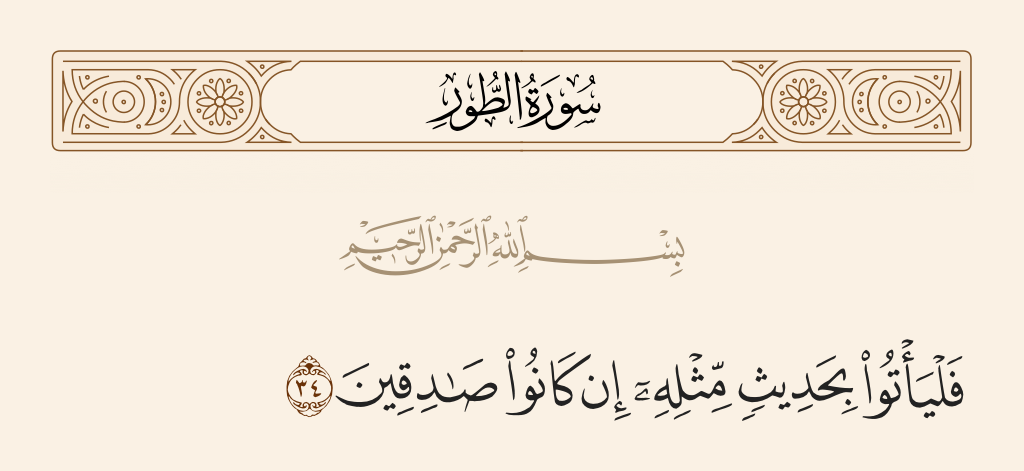 سُورَةُ الطُّورِ
بِسْمِ ٱللَّهِ ٱلرَّحْمَٰنِ ٱلرَّحِيمِ
فَلْيَأْتُوا۟ بِحَدِيثٍ مِّثْلِهِۦٓ إِن كَانُوا۟ صَـٰدِقِينَ ٣٤